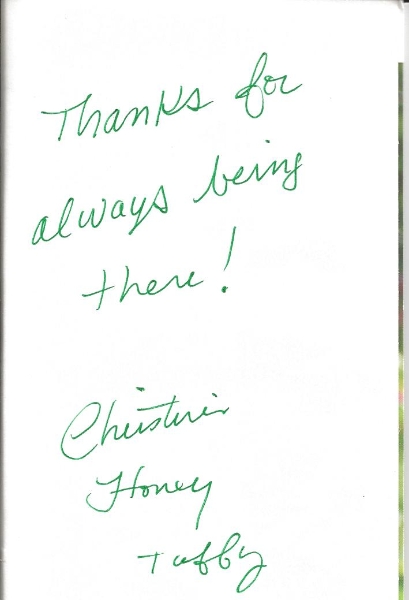 Thanks for
always being
there!
Christine
Honey
Taffy